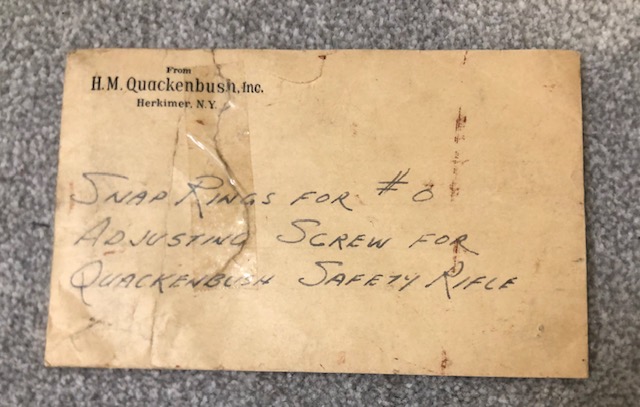 From
H.M. Quackenbush, Inc.
Herkimer, N.Y.
SNAP RINGS FOR #0
ADJUSTING SCREW FOR
QUACKENBUSH SAFETY RIFLE